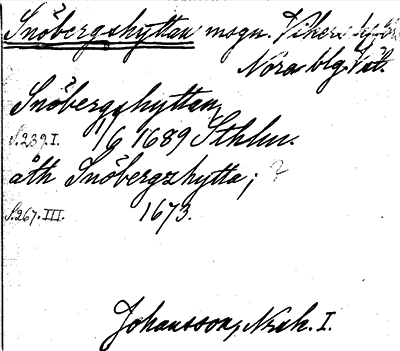 Snöbergshyttan mogn. Vikers
Nora blg. Vst.
Snöbergshyttan,
S.239.I. 1/6 1689 Sthlm.
åth Snöbergzhytta; ?
S.267.III. 1673.
Johansson, Norah. I.